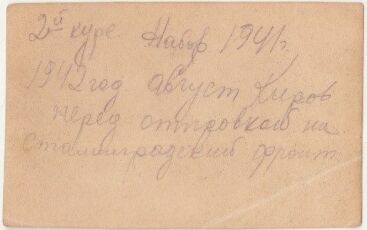 2й курс Набор 1941г.
1942 год август Киров
перед отправкой на
сталинградский фронт